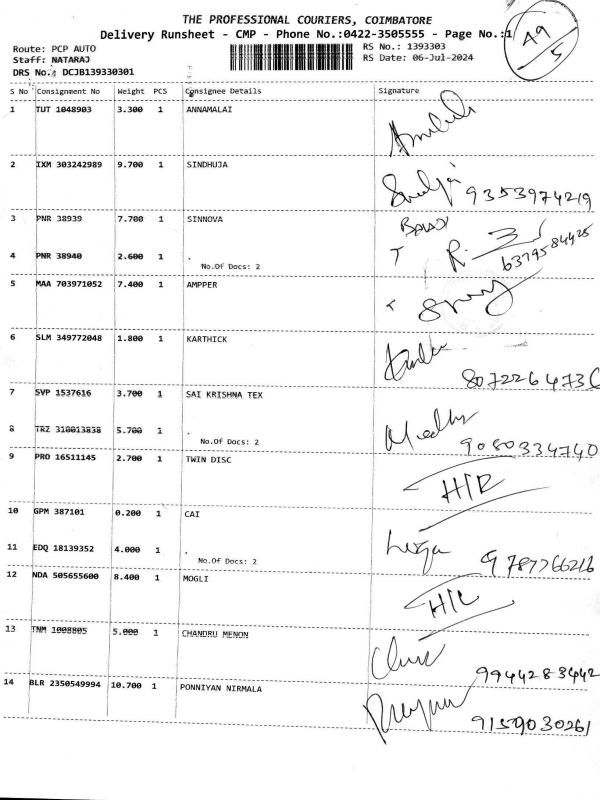 THE PROFESSIONAL COURIERS, COIMBATORE
Delivery Runsheet - CMP - Phone No.:0422-3505555 - Page No.:1/
49/5
Route: PCP AUTO
Staff: NATARAJ
DRS No.: DCJB139330301
RS No.: 1393303
RS Date: 06-Jul-2024
S No Consignment No Weight PCS Consignee Details Signature
1 TUT 1048903 3.300 1 ANNAMALAI
2 IXM 303242989 9.700 1 SINDHUJA
9353974219
3 PNR 38939 7.700 1 SINNOVA
BALAJI
4 PNR 38940 2.600 1 .
No.Of Docs: 2
6379584425
5 MAA 703971052 7.400 1 AMPPER
6 SLM 349772048 1.800 1 KARTHICK
8072264736
7 SVP 1537616 3.700 1 SAI KRISHNA TEX
8 TRZ 310013838 5.700 1 .
No.Of Docs: 2
9080334740
9 PRO 16511145 2.700 1 TWIN DISC
H/R
10 GPM 387101 0.200 1 CAI
11 EDQ 18139352 4.000 1 .
No.Of Docs: 2
9787766216
12 NDA 505655600 8.400 1 MOGLI
13 TNM 1008805 5.000 1 CHANDRU MENON
9944283442
14 BLR 2350549994 10.700 1 PONNIYAN NIRMALA
9159030261